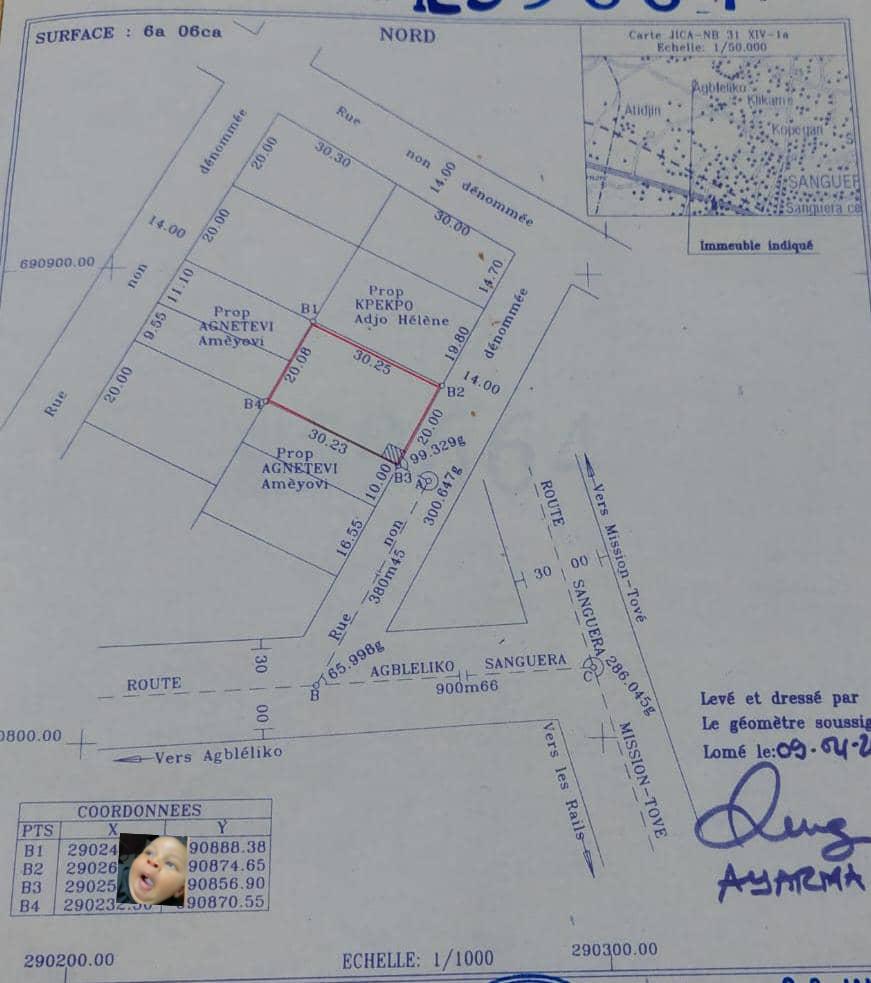 SURFACE : 6a 06ca
NORD
Carte JICA-NB 31 XIV-1a
Echelle: 1/50.000
Agbleliko
Klikame
Atidjin
Kopegan
SANGUER
Sanguera ce
Immeuble indiqué
Rue non dénommée
14.00
Rue non dénommée
14.00
20.00
30.30
30.00
20.00
14.70
690900.00
11.10
Prop
KPEKPO
Adjo Hélène
Prop
AGNETEVI
Amèyovi
B1
9.55
19.80
dénommée
20.08
30.25
14.00
20.00
B2
B4
20.00
30.23
99.329g
Prop
AGNETEVI
Amèyovi
10.00
B3
A
300.647g
16.55
non
380m45
Rue
ROUTE SANGUERA MISSION-TOVE
Vers Mission-Tové
30 00
65.998g
AGBLELIKO SANGUERA
30
ROUTE
B
900m66
C
286.045g
00
Levé et dressé par
Le géomètre soussig
Lomé le:09-04-2
0800.00
Vers Agbléliko
Vers les Rails
AYARMA
COORDONNEES
PTS X Y
B1 29024 90888.38
B2 29026 90874.65
B3 29025 90856.90
B4 290232 90870.55
290200.00
ECHELLE: 1/1000
290300.00